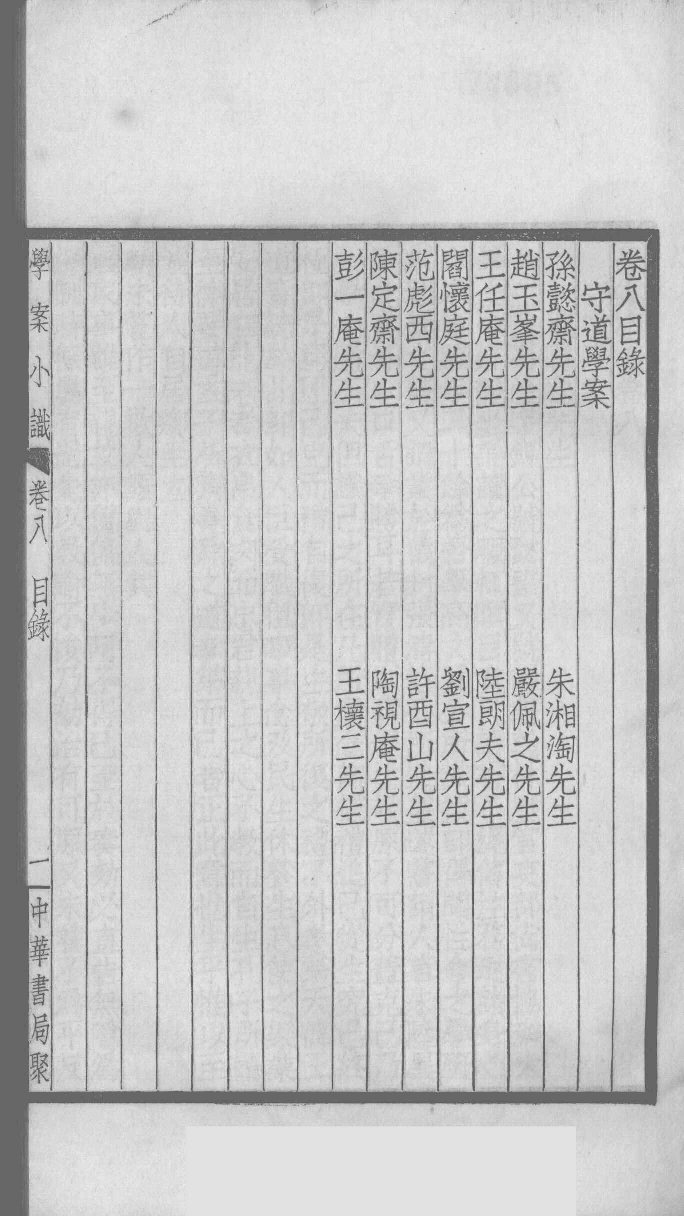 卷八目錄
守道學案
孫懿齋先生 朱湘淘先生
趙玉峯先生 嚴佩之先生
王任庵先生 陸朗夫先生
閻懷庭先生 劉宣人先生
范彪西先生 許酉山先生
陳定齋先生 陶視庵先生
彭一庵先生 王欀三先生
學案小識 卷八 目錄 一 中華書局聚